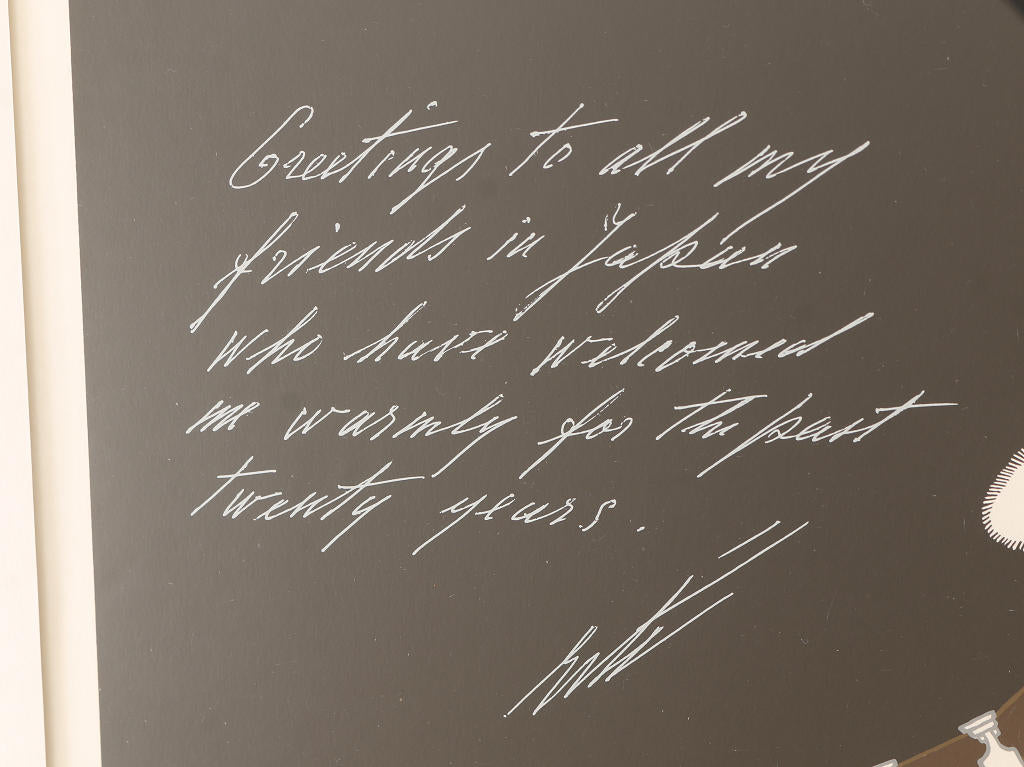 Greetings to all my
friends in Japan
who have welcomed
me warmly for the past
twenty years.